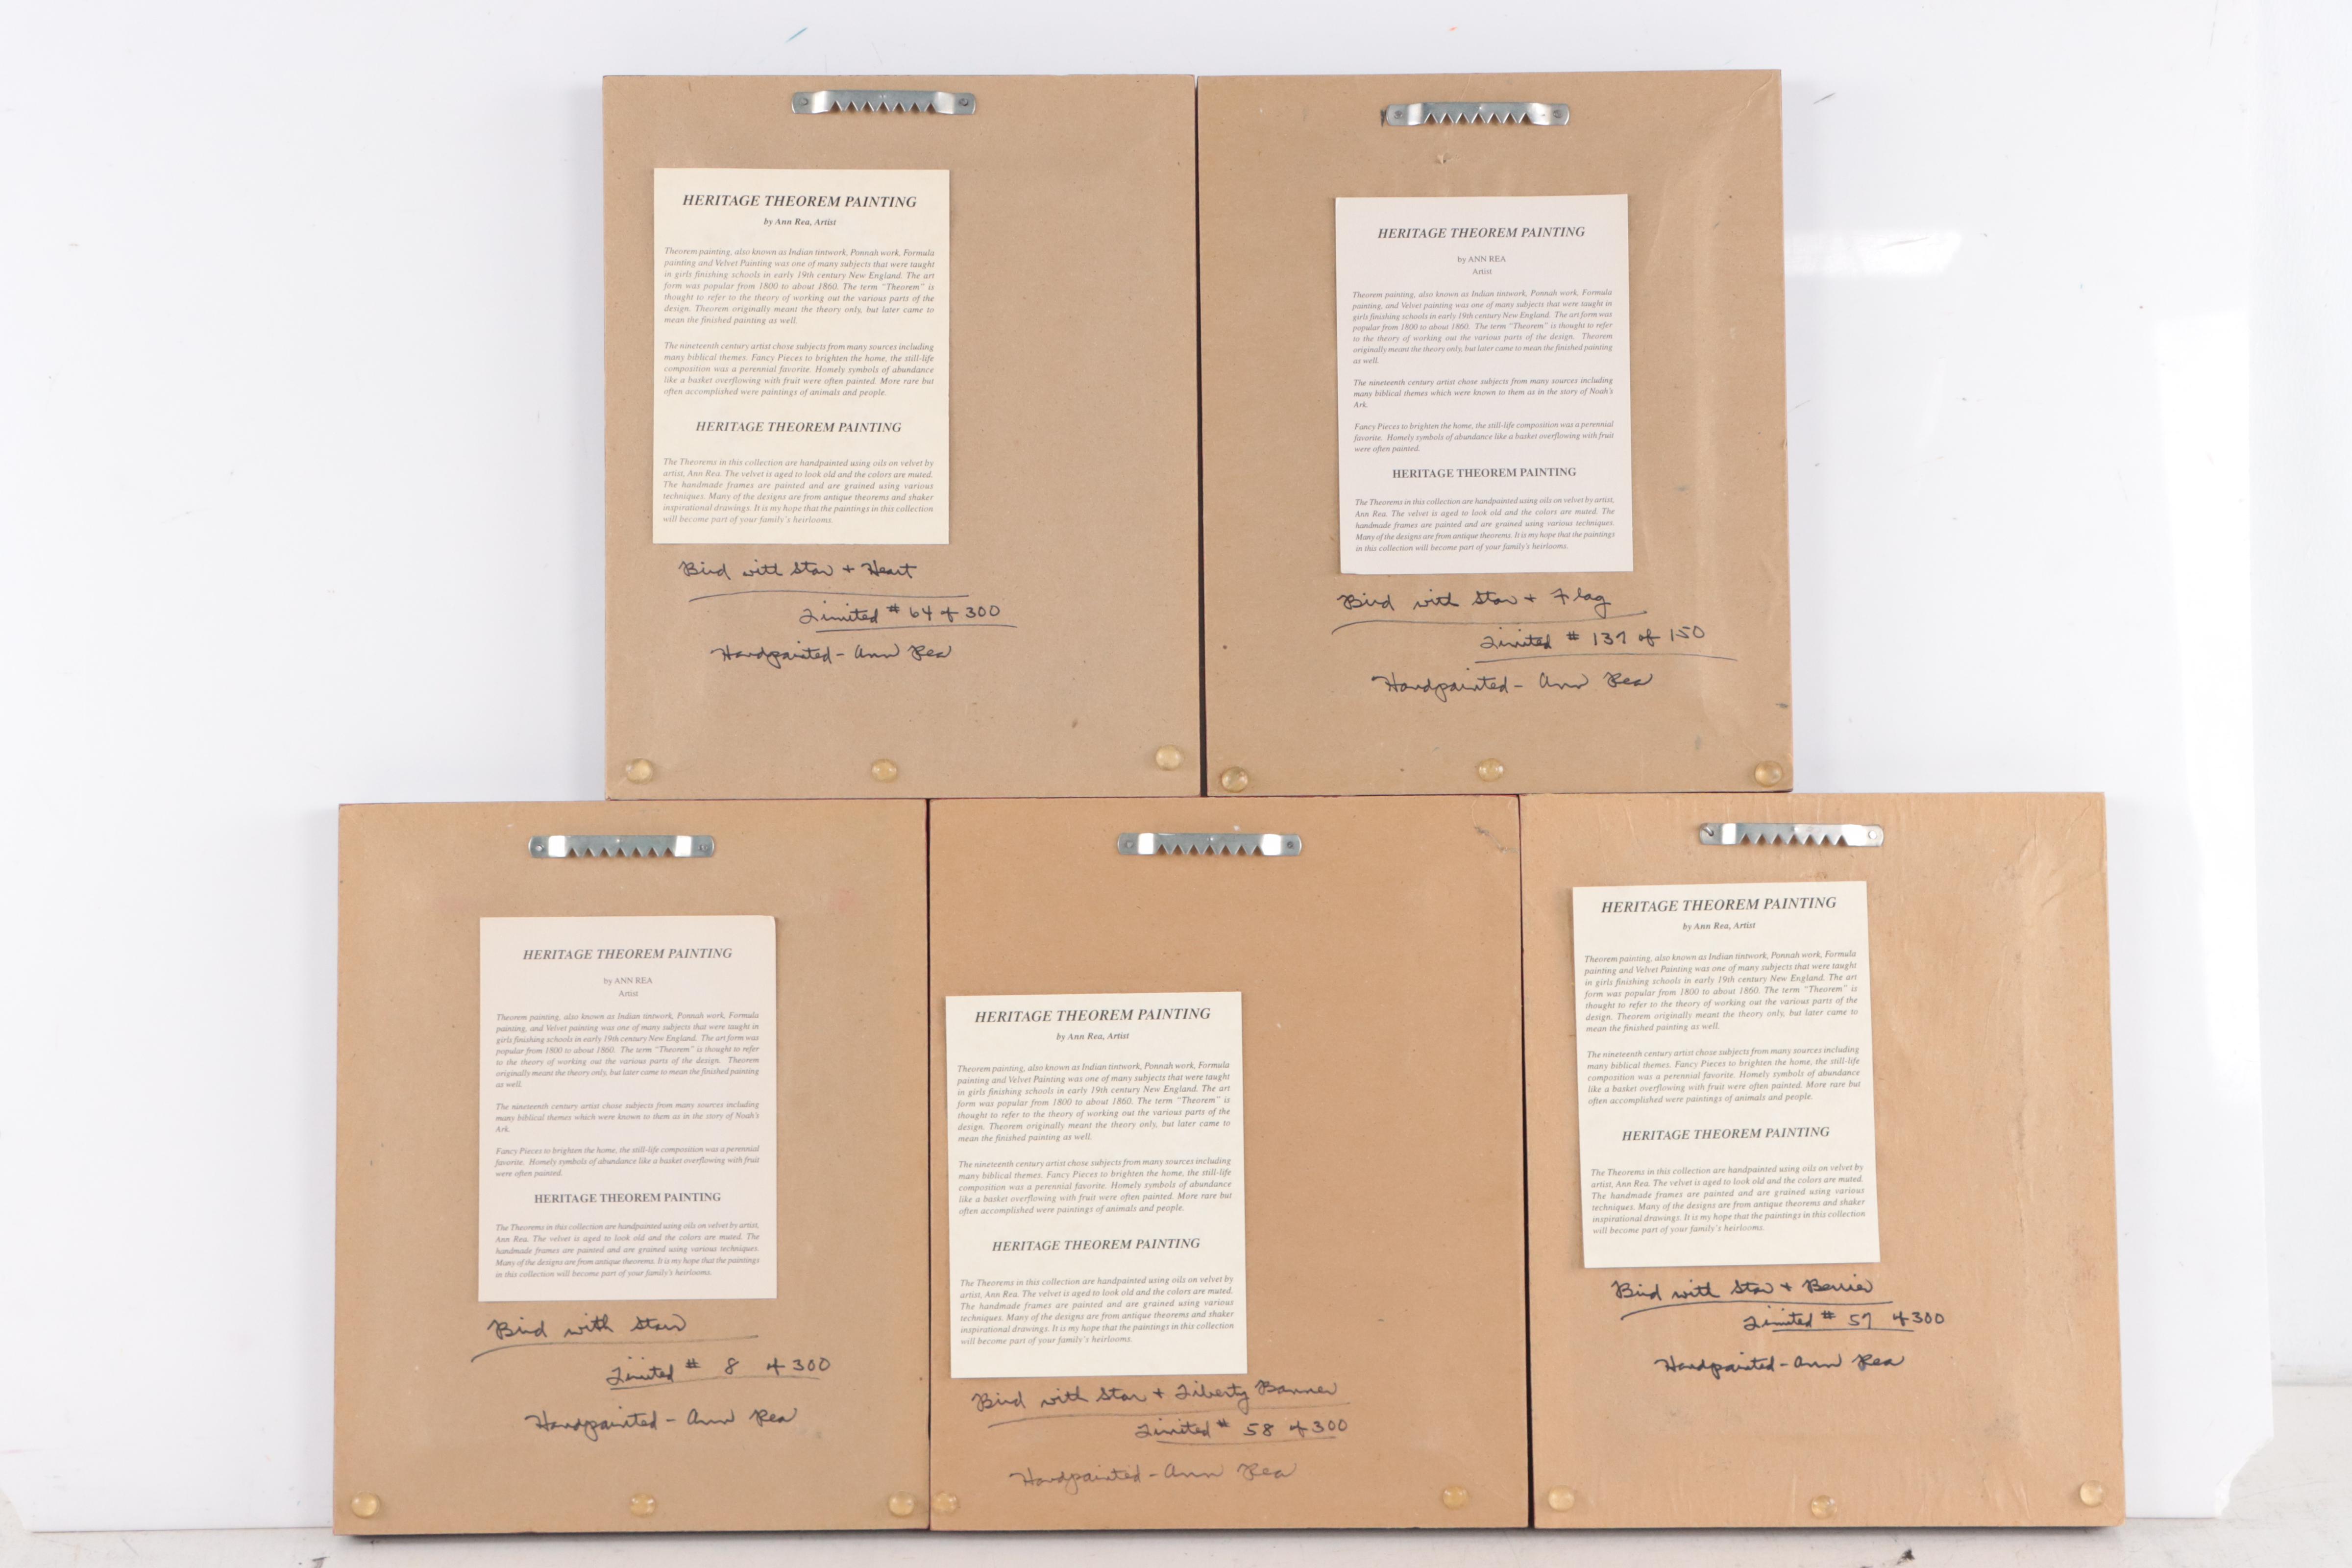 HERITAGE THEOREM PAINTING
by Ann Rea, Artist
Theorem painting, also known as Indian tintwork, Ponnah work, Formula
painting and Velvet Painting was one of many subjects that were taught
in girls finishing schools in early 19th century New England. The art
form was popular from 1800 to about 1860. The term "Theorem" is
thought to refer to the theory of working out the various parts of the
design. Theorem originally meant the theory only, but later came to
mean the finished painting as well.
The nineteenth century artist chose subjects from many sources including
many biblical themes. Fancy Pieces to brighten the home, the still-life
composition was a perennial favorite. Homely symbols of abundance
like a basket overflowing with fruit were often painted. More rare but
often accomplished were paintings of animals and people.
HERITAGE THEOREM PAINTING
The Theorems in this collection are handpainted using oils on velvet by
artist, Ann Rea. The velvet is aged to look old and the colors are muted.
The handmade frames are painted and are grained using various
techniques. Many of the designs are from antique theorems and shaker
inspirational drawings. It is my hope that the paintings in this collection
will become part of your family's heirlooms.
Bird with Star + Heart
Limited # 64 of 300
Handpainted - Ann Rea
HERITAGE THEOREM PAINTING
by ANN REA
Artist
Theorem painting, also known as Indian tintwork, Ponnah work, Formula
painting, and Velvet painting was one of many subjects that were taught in
girls finishing schools in early 19th century New England. The art form was
popular from 1800 to about 1860. The term "Theorem" is thought to refer
to the theory of working out the various parts of the design. Theorem
originally meant the theory only, but later came to mean the finished painting
as well.
The nineteenth century artist chose subjects from many sources including
many biblical themes which were known to them as in the story of Noah's
Ark.
Fancy Pieces to brighten the home, the still-life composition was a perennial
favorite. Homely symbols of abundance like a basket overflowing with fruit
were often painted.
HERITAGE THEOREM PAINTING
The Theorems in this collection are handpainted using oils on velvet by artist,
Ann Rea. The velvet is aged to look old and the colors are muted. The
handmade frames are painted and are grained using various techniques.
Many of the designs are from antique theorems. It is my hope that the paintings
in this collection will become part of your family's heirlooms.
Bird with Star + Flag
Limited # 137 of 150
Handpainted - Ann Rea
HERITAGE THEOREM PAINTING
by ANN REA
Artist
Theorem painting, also known as Indian tintwork, Ponnah work, Formula
painting, and Velvet painting was one of many subjects that were taught in
girls finishing schools in early 19th century New England. The art form was
popular from 1800 to about 1860. The term "Theorem" is thought to refer
to the theory of working out the various parts of the design. Theorem
originally meant the theory only, but later came to mean the finished painting
as well.
The nineteenth century artist chose subjects from many sources including
many biblical themes which were known to them as in the story of Noah's
Ark.
Fancy Pieces to brighten the home, the still-life composition was a perennial
favorite. Homely symbols of abundance like a basket overflowing with fruit
were often painted.
HERITAGE THEOREM PAINTING
The Theorems in this collection are handpainted using oils on velvet by artist,
Ann Rea. The velvet is aged to look old and the colors are muted. The
handmade frames are painted and are grained using various techniques.
Many of the designs are from antique theorems. It is my hope that the paintings
in this collection will become part of your family's heirlooms.
Bird with Star
Limited # 8 of 300
Handpainted - Ann Rea
HERITAGE THEOREM PAINTING
by Ann Rea, Artist
Theorem painting, also known as Indian tintwork, Ponnah work, Formula
painting and Velvet Painting was one of many subjects that were taught
in girls finishing schools in early 19th century New England. The art
form was popular from 1800 to about 1860. The term "Theorem" is
thought to refer to the theory of working out the various parts of the
design. Theorem originally meant the theory only, but later came to
mean the finished painting as well.
The nineteenth century artist chose subjects from many sources including
many biblical themes. Fancy Pieces to brighten the home, the still-life
composition was a perennial favorite. Homely symbols of abundance
like a basket overflowing with fruit were often painted. More rare but
often accomplished were paintings of animals and people.
HERITAGE THEOREM PAINTING
The Theorems in this collection are handpainted using oils on velvet by
artist, Ann Rea. The velvet is aged to look old and the colors are muted.
The handmade frames are painted and are grained using various
techniques. Many of the designs are from antique theorems and shaker
inspirational drawings. It is my hope that the paintings in this collection
will become part of your family's heirlooms.
Bird with Star + Liberty Banner
Limited # 58 of 300
Handpainted - Ann Rea
HERITAGE THEOREM PAINTING
by Ann Rea, Artist
Theorem painting, also known as Indian tintwork, Ponnah work, Formula
painting and Velvet Painting was one of many subjects that were taught
in girls finishing schools in early 19th century New England. The art
form was popular from 1800 to about 1860. The term "Theorem" is
thought to refer to the theory of working out the various parts of the
design. Theorem originally meant the theory only, but later came to
mean the finished painting as well.
The nineteenth century artist chose subjects from many sources including
many biblical themes. Fancy Pieces to brighten the home, the still-life
composition was a perennial favorite. Homely symbols of abundance
like a basket overflowing with fruit were often painted. More rare but
often accomplished were paintings of animals and people.
HERITAGE THEOREM PAINTING
The Theorems in this collection are handpainted using oils on velvet by
artist, Ann Rea. The velvet is aged to look old and the colors are muted.
The handmade frames are painted and are grained using various
techniques. Many of the designs are from antique theorems and shaker
inspirational drawings. It is my hope that the paintings in this collection
will become part of your family's heirlooms.
Bird with Star + Berries
Limited # 57 of 300
Handpainted - Ann Rea